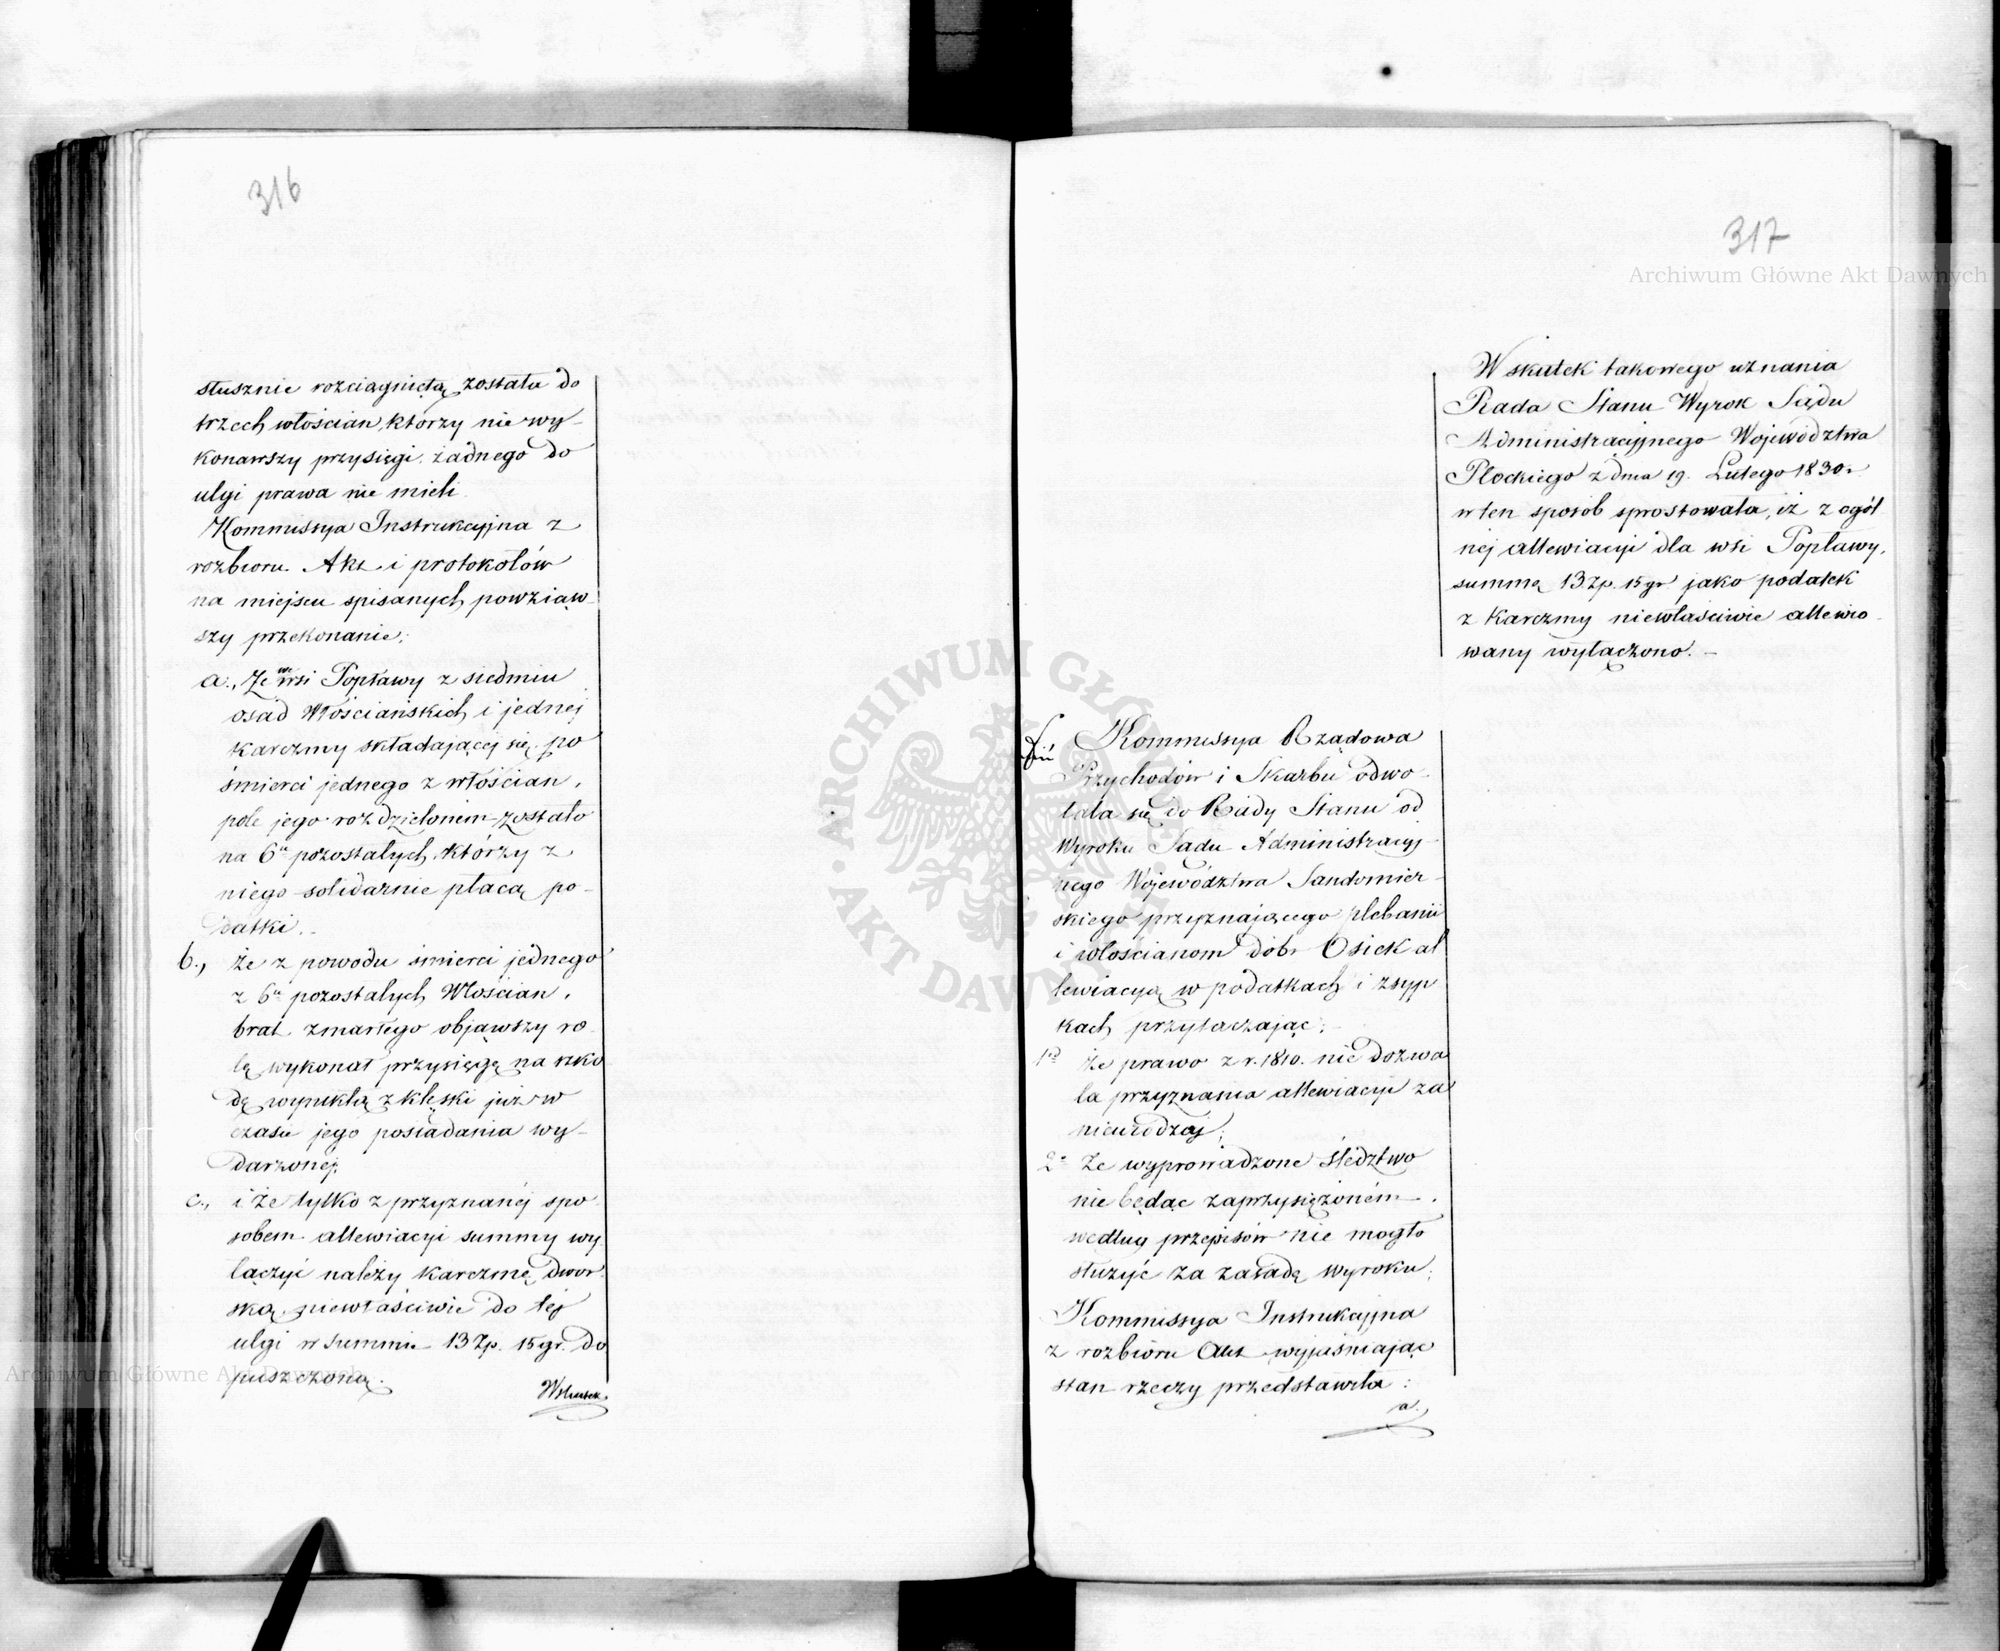 316
słusznie rozciągniętą została do
trzech włościan, którzy nie wy-
konawszy przysięgi, żadnego do
ulgi prawa nie mieli.
Kommissya Instrukcyjna z
rozbioru Akt i protokołów
na miejscu spisanych powziąw-
szy przekonanie:
a., Że wsi Popławy z siedmiu
osad Włościańskich i jednej
karczmy składającej się, po
śmierci jednego z włościan,
pole jego rozdzielonem zostało
na 6u pozostałych, którzy z
niego solidarnie płacą po-
datki.-
b., że z powodu śmierci jednego
z 6u pozostałych Włościan,
brat zmarłego objąwszy ro-
lą wykonał przysięgę na szko
dę wynikłą z klęski już w
czasie jego posiadania wy-
darzonej,
c., i że tylko z przyznanéj spo-
sobem allewiacyi summy wy
łączyć należy karczmę dwor-
ską, niewłaściwie do téj
ulgi w summie 13 Zp. 15 gr. do
puszczoną.
W skutek
317
Archiwum Główne Akt Dawnych
W skutek takowego uznania
Rada Stanu Wyrok Sądu
Administracyjnego Województwa
Płockiego z dnia 19. Lutego 1830 r.
w ten sposób sprostowała, iż z ogół
nej allewiacyi dla wsi Popławy,
summę 13 Zp. 15 gr. jako podatek
z Karczmy niewłaściwie allewio-
wany wyłączono.-
Kommissya Rządowa
Przychodów i Skarbu odwo-
łała się do Rady Stanu od
Wyroku Sądu Administracyj-
nego Województwa Sandomier-
skiego przyznającego plebanii
i włościanom dóbr Osiek al
lewiacyą w podatkach i zsyp
kach przytaczając:
1o że prawo z r. 1810. nie dozwa
la przyznania allewiacyi za
nieurodzaj;
2o Że wyprowadzone śledztwo
nie będąc zaprzysiężoném
według przepisów nie mogło
służyć za zasadę wyroku;
Kommissya Instrukcyjna
z rozbioru Akt wyjaśniając
stan rzeczy przedstawiła:
a.,
ARCHIWUM GŁÓWNE AKT DAWNYCH
Archiwum Główne Akt Dawnych